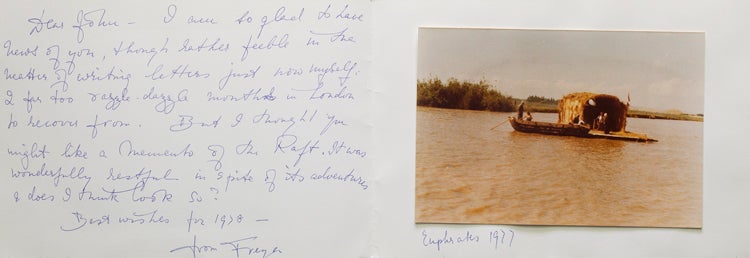 Dear John – I am so glad to have
news of you, though rather feeble in the
matter of writing letters just now myself.
2 far too razzle-dazzle months in London
to recover from. But I thought you
might like a Memento of the Raft. It was
wonderfully restful in spite of its adventures
& does I think look so?
Best wishes for 1978 –
from Freya
Euphrates 1977